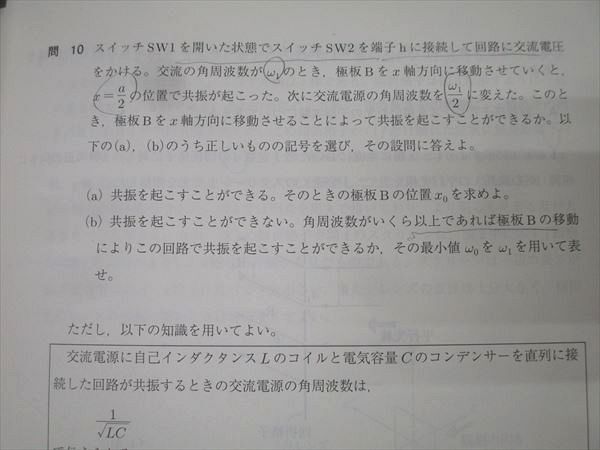 問 10 スイッチ SW1 を開いた状態でスイッチ SW2 を端子 h に接続して回路に交流電圧
をかける。交流の角周波数が ω₁ のとき，極板 B を x 軸方向に移動させていくと，
x = a/2 の位置で共振が起こった。次に交流電源の角周波数を ω₁/2 に変えた。このと
き，極板 B を x 軸方向に移動させることによって共振を起こすことができるか。以
下の(a)，(b)のうち正しいものの記号を選び，その設問に答えよ。
(a) 共振を起こすことができる。そのときの極板 B の位置 x₀ を求めよ。
(b) 共振を起こすことができない。角周波数がいくら以上であれば極板 B の移動
によりこの回路で共振を起こすことができるか，その最小値 ω₀ を ω₁ を用いて表
せ。
ただし，以下の知識を用いてよい。
交流電源に自己インダクタンス L のコイルと電気容量 C のコンデンサーを直列に接
続した回路が共振するときの交流電源の角周波数は，
1/√LC